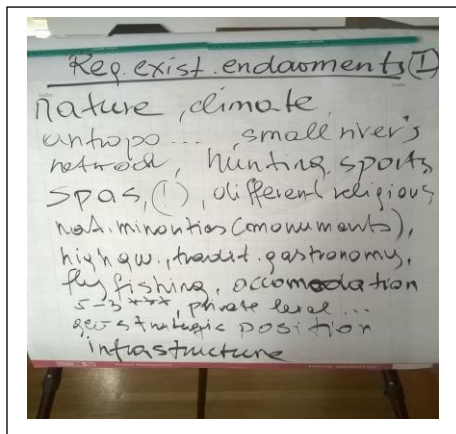 Reg. exist. endaoments (I)
nature, climate
antropo... , small river's
network, hunting, sports
spas, (!), different religious
nat. minorities (monuments),
high qu., tradit. gastronomy,
fly fishing, accomodation
5-3 ***, private level ...
geo strategic position
infrastructure